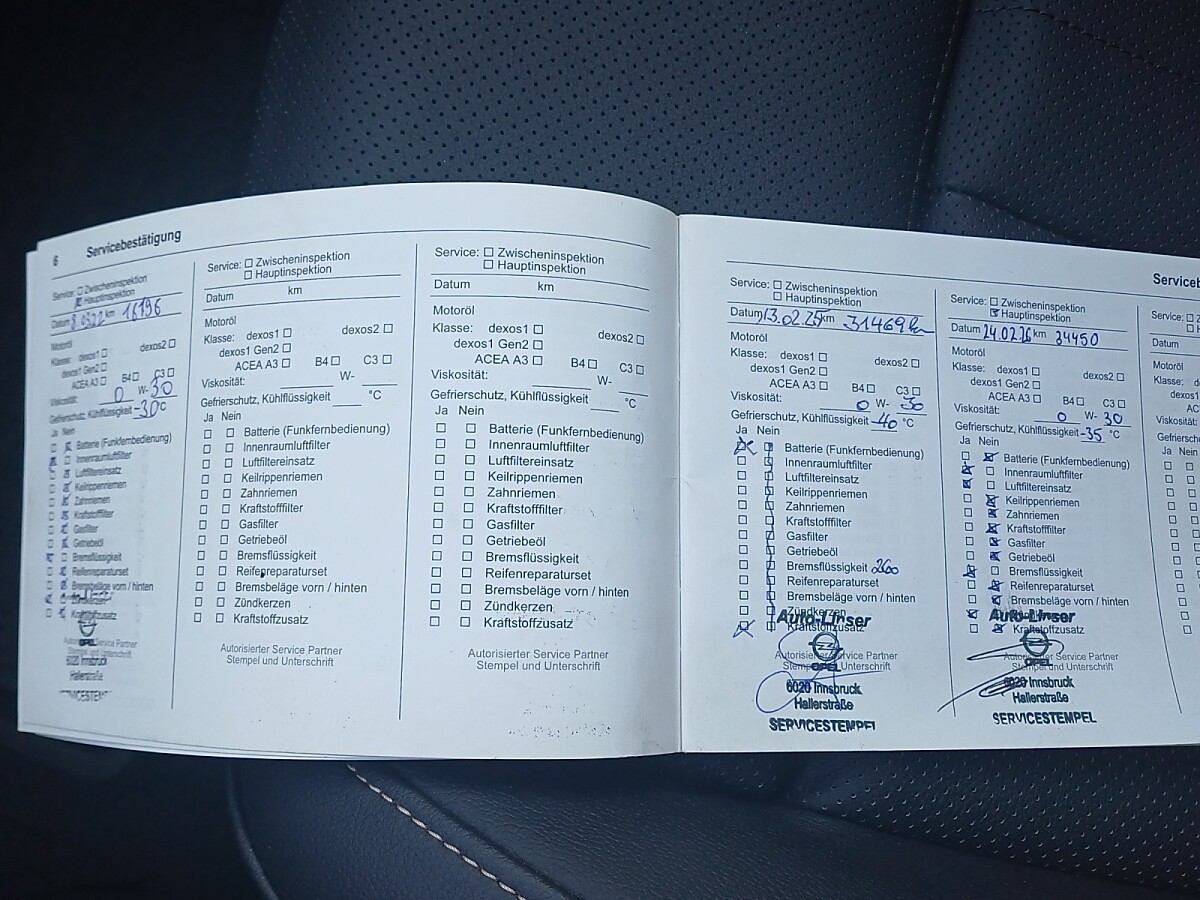 6 Servicebestätigung
Service: Zwischeninspektion
Hauptinspektion
Datum 8.03.22 km 16196
Motoröl
Klasse: dexos1 dexos2
dexos1 Gen2
ACEA A3 B4 C3
Viskosität: 0 W- 30
Gefrierschutz, Kühlflüssigkeit -30°C
Ja Nein
Batterie (Funkfernbedienung)
Innenraumluftfilter
Luftfiltereinsatz
Keilrippenriemen
Zahnriemen
Kraftstofffilter
Gasfilter
Getriebeöl
Bremsflüssigkeit
Reifenreparaturset
Bremsbeläge vorn / hinten
Zündkerzen
Kraftstoffzusatz
Autorisierter Service Partner
Stempel und Unterschrift
OPEL
6020 Innsbruck
Hallerstraße
SERVICESTEMPEL
Service: Zwischeninspektion
Hauptinspektion
Datum km
Motoröl
Klasse: dexos1 dexos2
dexos1 Gen2
ACEA A3 B4 C3
Viskosität: W-
Gefrierschutz, Kühlflüssigkeit °C
Ja Nein
Batterie (Funkfernbedienung)
Innenraumluftfilter
Luftfiltereinsatz
Keilrippenriemen
Zahnriemen
Kraftstofffilter
Gasfilter
Getriebeöl
Bremsflüssigkeit
Reifenreparaturset
Bremsbeläge vorn / hinten
Zündkerzen
Kraftstoffzusatz
Autorisierter Service Partner
Stempel und Unterschrift
Service: Zwischeninspektion
Hauptinspektion
Datum km
Motoröl
Klasse: dexos1 dexos2
dexos1 Gen2
ACEA A3 B4 C3
Viskosität: W-
Gefrierschutz, Kühlflüssigkeit °C
Ja Nein
Batterie (Funkfernbedienung)
Innenraumluftfilter
Luftfiltereinsatz
Keilrippenriemen
Zahnriemen
Kraftstofffilter
Gasfilter
Getriebeöl
Bremsflüssigkeit
Reifenreparaturset
Bremsbeläge vorn / hinten
Zündkerzen
Kraftstoffzusatz
Autorisierter Service Partner
Stempel und Unterschrift
Serviceb
Service: Zwischeninspektion
Hauptinspektion
Datum 13.02.25 km 31469 km
Motoröl
Klasse: dexos1 dexos2
dexos1 Gen2
ACEA A3 B4 C3
Viskosität: 0 W- 30
Gefrierschutz, Kühlflüssigkeit -40 °C
Ja Nein
Batterie (Funkfernbedienung)
Innenraumluftfilter
Luftfiltereinsatz
Keilrippenriemen
Zahnriemen
Kraftstofffilter
Gasfilter
Getriebeöl
Bremsflüssigkeit
Reifenreparaturset
Bremsbeläge vorn / hinten
Zündkerzen
Auto-Linser
Kraftstoffzusatz
Autorisierter Service Partner
OPEL
Stempel und Unterschrift
6020 Innsbruck
Hallerstraße
SERVICESTEMPEL
Service: Zwischeninspektion
Hauptinspektion
Datum 24.02.26 km 34450
Motoröl
Klasse: dexos1 dexos2
dexos1 Gen2
ACEA A3 B4 C3
Viskosität: 0 W- 30
Gefrierschutz, Kühlflüssigkeit -35 °C
Ja Nein
Batterie (Funkfernbedienung)
Innenraumluftfilter
Luftfiltereinsatz
Keilrippenriemen
Zahnriemen
Kraftstofffilter
Gasfilter
Getriebeöl
Bremsflüssigkeit
Reifenreparaturset
Bremsbeläge vorn / hinten
Auto-Linser
Kraftstoffzusatz
Autorisierter Service Partner
OPEL
Stempel und Unterschrift
6020 Innsbruck
Hallerstraße
SERVICESTEMPEL
Service:
Datum
Motoröl
Klasse:
dexos1
AC
Viskosität:
Gefriersch
Ja Nein